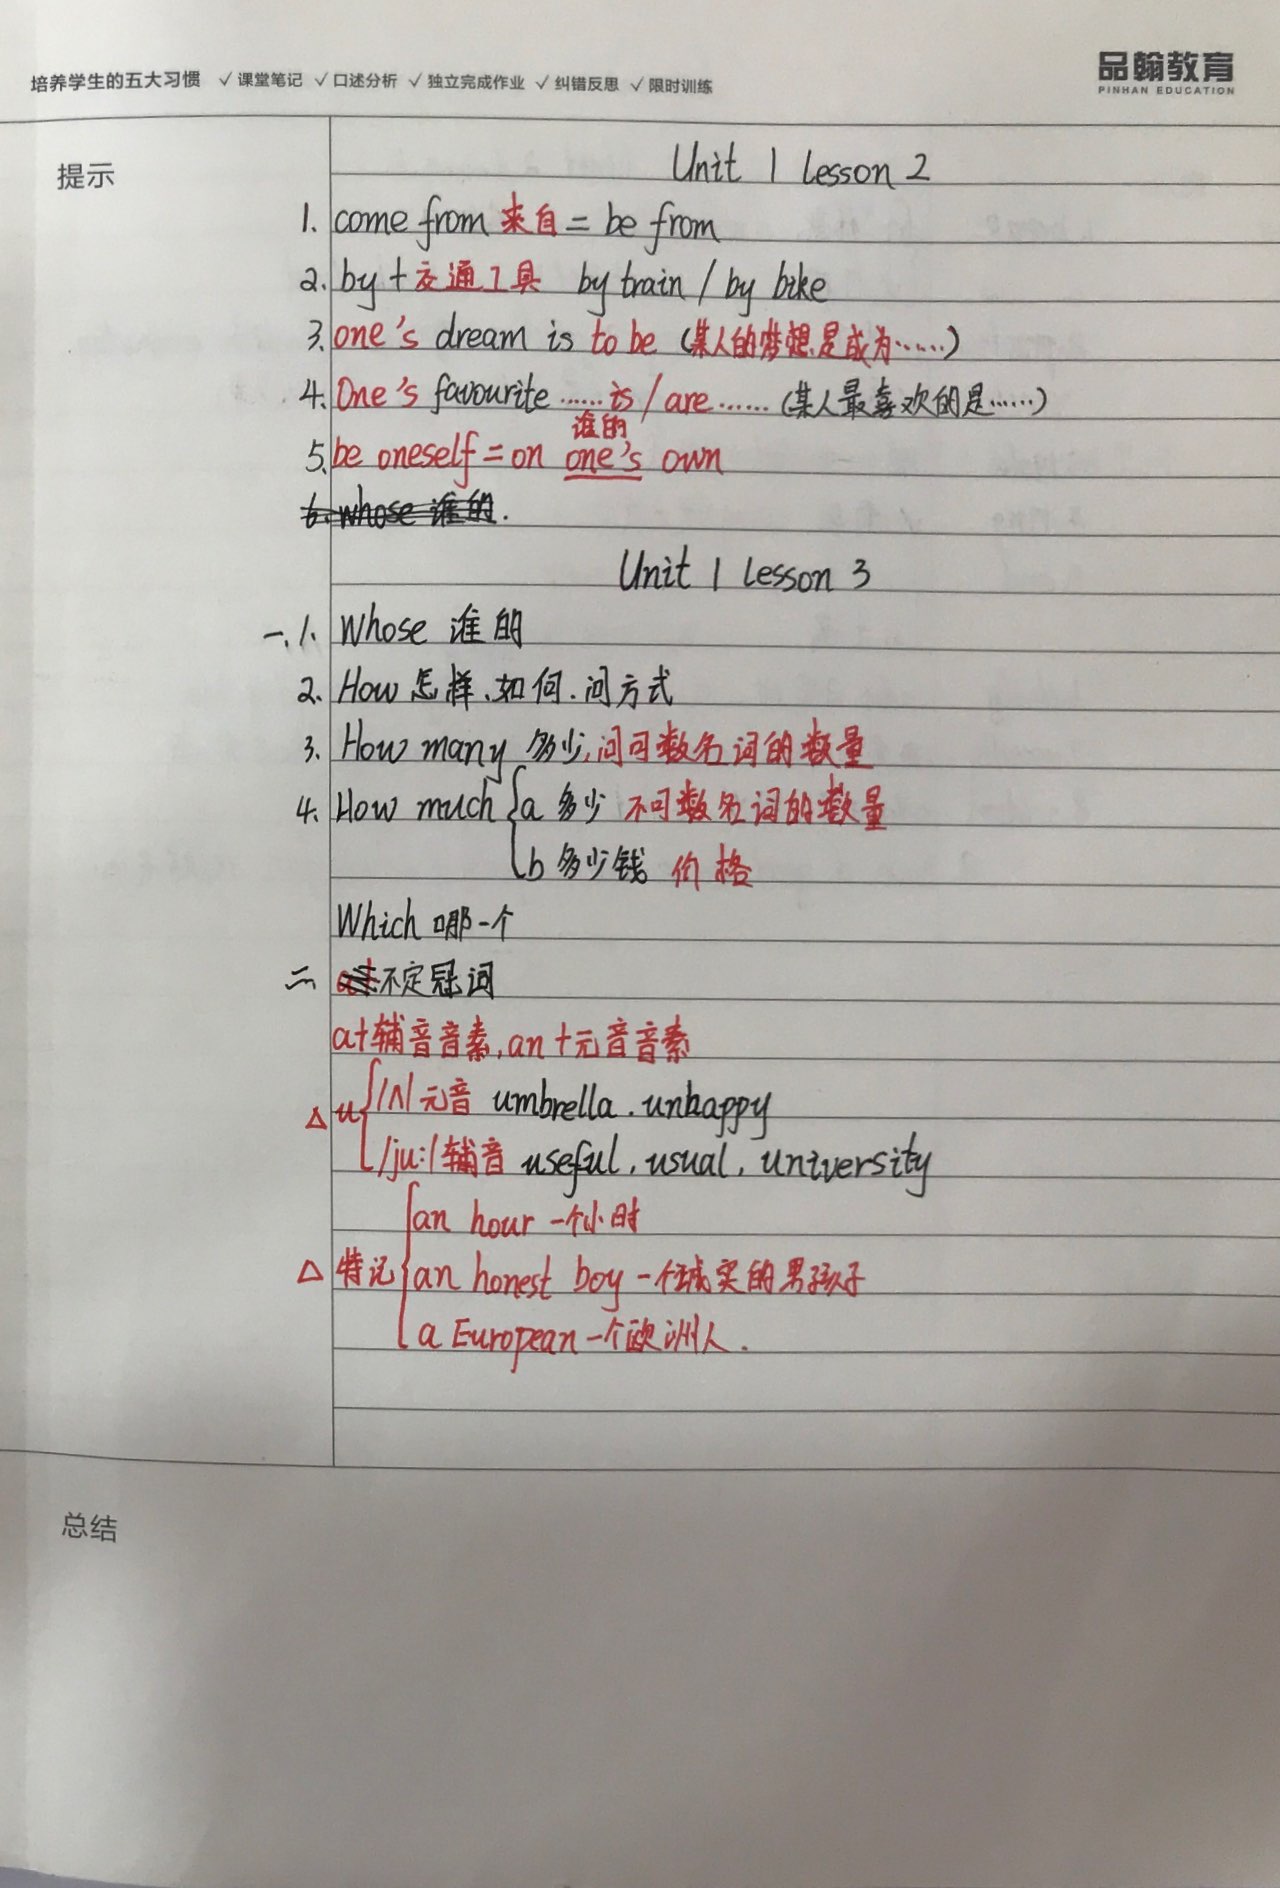 培养学生的五大习惯 √课堂笔记 √口述分析 √独立完成作业 √纠错反思 √限时训练
品翰教育
PINHAN EDUCATION
提示
Unit 1 Lesson 2
1. come from 来自 = be from
2. by + 交通工具 by train / by bike
3. one's dream is to be (某人的梦想是成为……)
4. One's favourite ...... is / are ...... (某人最喜欢的是……)
谁的
5. be oneself = on one's own
6. whose 谁的.
Unit 1 Lesson 3
一. 1. Whose 谁的
2. How 怎样、如何. 问方式
3. How many 多少, 问可数名词的数量
4. How much { a 多少 不可数名词的数量
b 多少钱 价格
Which 哪一个
二 不定冠词
a+辅音音素, an+元音音素
△ u { /ʌ/ 元音 umbrella. unhappy
/ju:/ 辅音 useful, usual, university
an hour 一个小时
△ 特记 { an honest boy 一个诚实的男孩子
a European 一个欧洲人.
总结